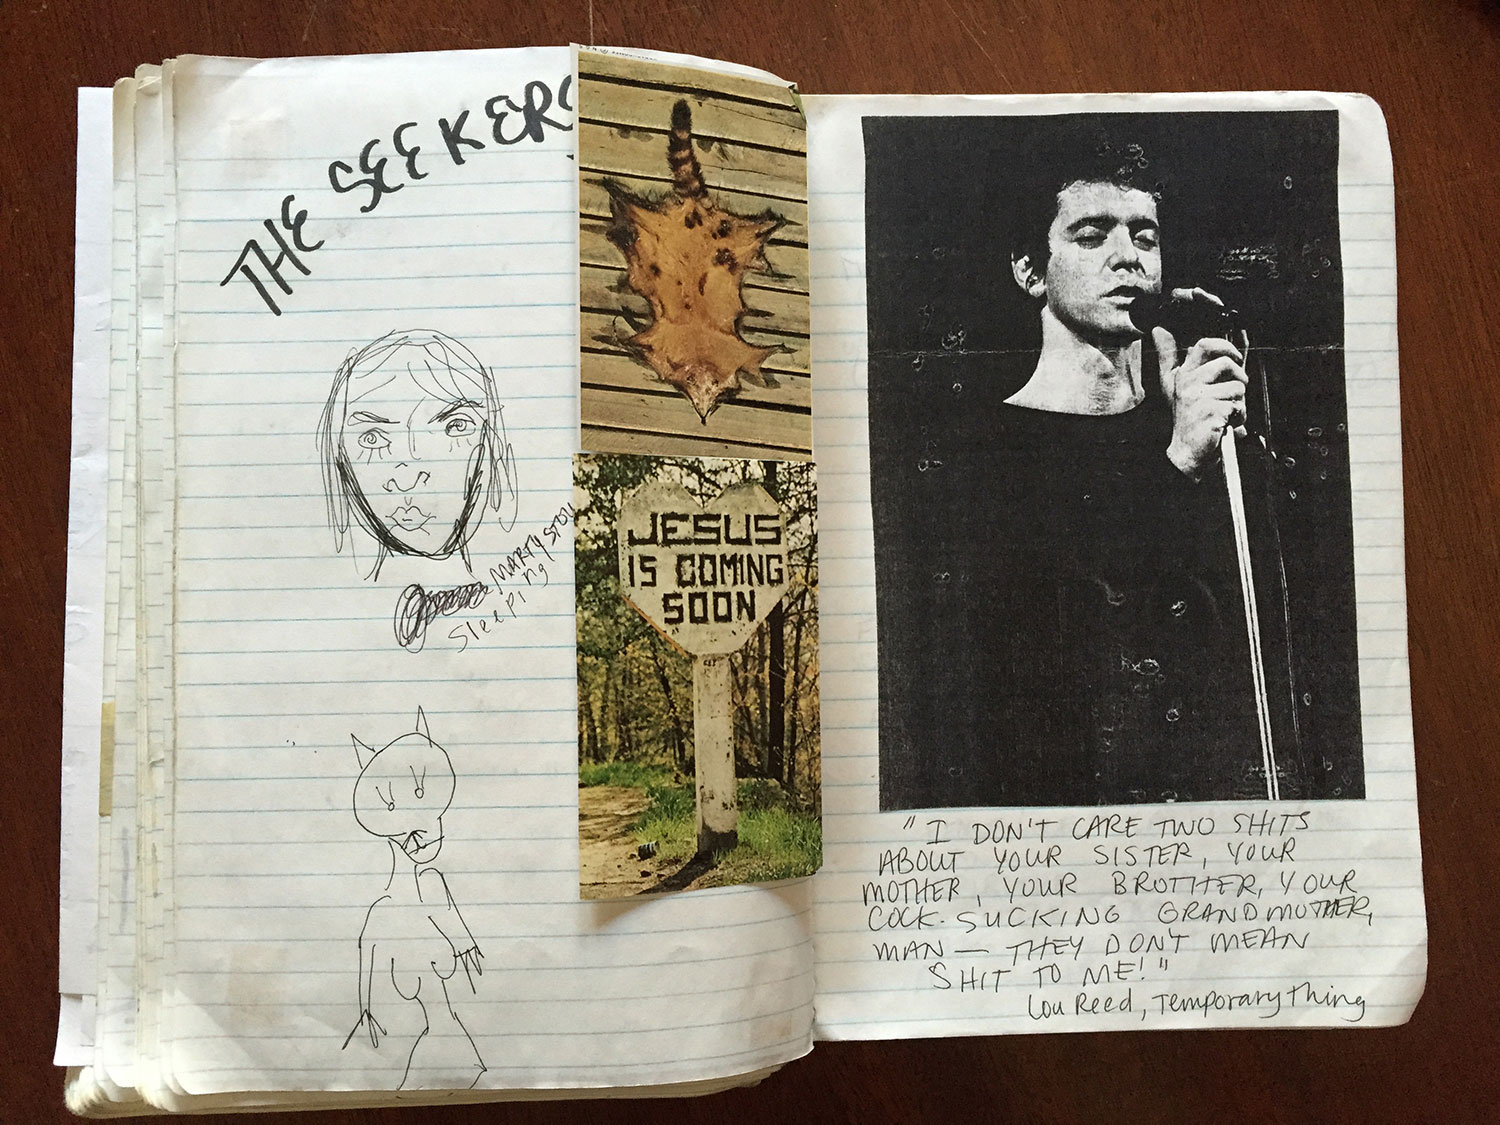 THE SEEKERS
MARTY STOU
Sleeping
JESUS
IS COMING
SOON
"I DON'T CARE TWO SHITS
ABOUT YOUR SISTER, YOUR
MOTHER, YOUR BROTHER, YOUR
COCK-SUCKING GRANDMOTHER,
MAN — THEY DON'T MEAN
SHIT TO ME!"
Lou Reed, Temporary Thing